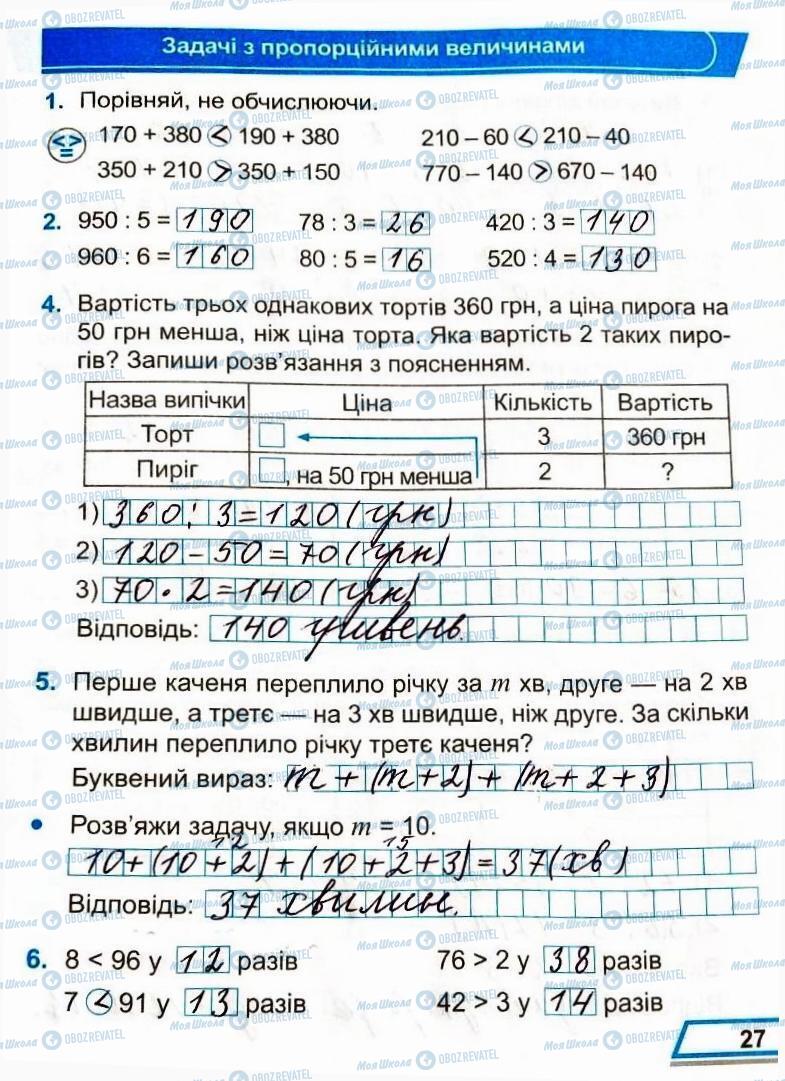 Задачі з пропорційними величинами
1. Порівняй, не обчислюючи.
170 + 380 < 190 + 380 210 – 60 < 210 – 40
350 + 210 > 350 + 150 770 – 140 > 670 – 140
2. 950 : 5 = 190 78 : 3 = 26 420 : 3 = 140
960 : 6 = 160 80 : 5 = 16 520 : 4 = 130
4. Вартість трьох однакових тортів 360 грн, а ціна пирога на
50 грн менша, ніж ціна торта. Яка вартість 2 таких пиро-
гів? Запиши розв'язання з поясненням.
Назва випічки Ціна Кількість Вартість
Торт 3 360 грн
Пиріг , на 50 грн менша 2 ?
1) 360 : 3 = 120 (грн)
2) 120 – 50 = 70 (грн)
3) 70 · 2 = 140 (грн)
Відповідь: 140 гривень.
5. Перше каченя переплило річку за m хв, друге — на 2 хв
швидше, а третє — на 3 хв швидше, ніж друге. За скільки
хвилин переплило річку третє каченя?
Буквений вираз: m + (m + 2) + (m + 2 + 3)
• Розв'яжи задачу, якщо m = 10.
12 15
10 + (10 + 2) + (10 + 2 + 3) = 37 (хв)
Відповідь: 37 хвилин.
6. 8 < 96 у 12 разів 76 > 2 у 38 разів
7 < 91 у 13 разів 42 > 3 у 14 разів
27